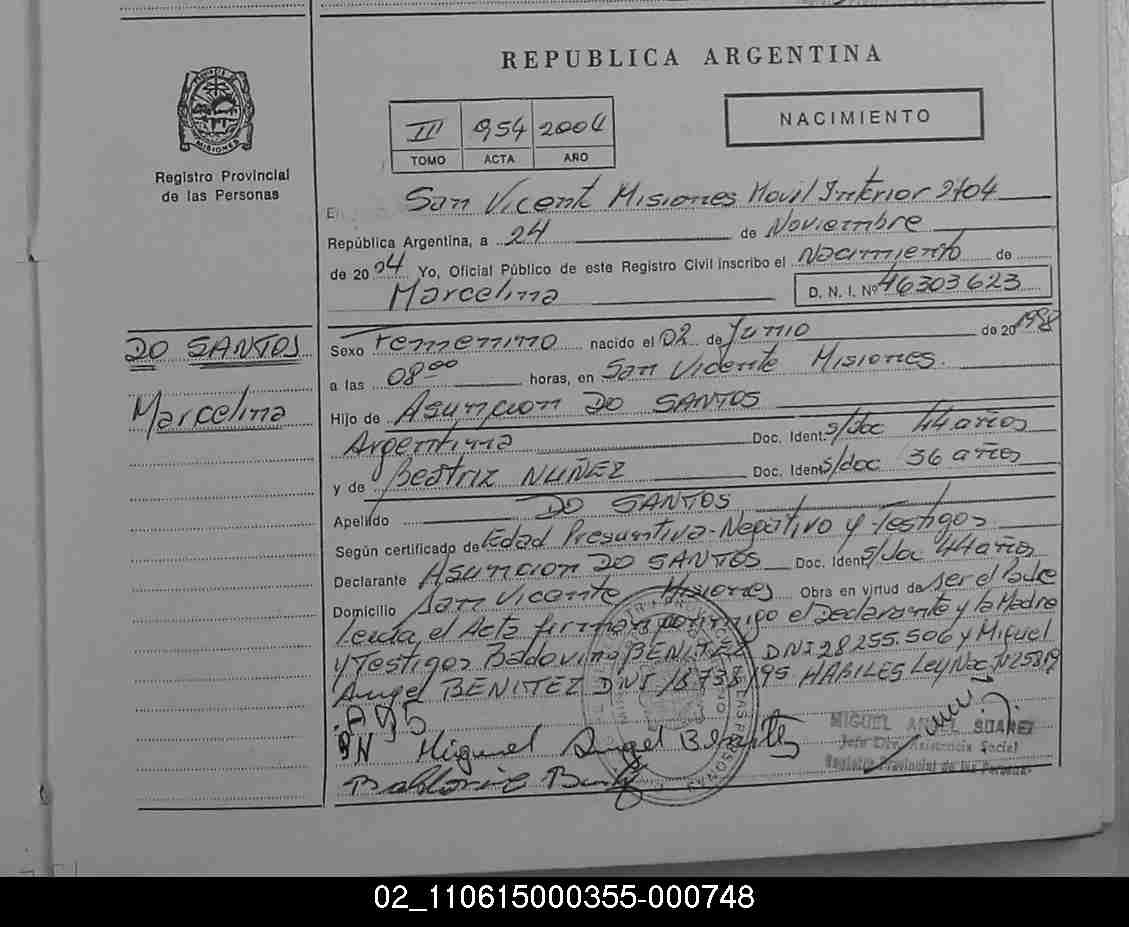 REPUBLICA ARGENTINA
PROVINCIA DE MISIONES
Registro Provincial
de las Personas
III 954 2004
TOMO ACTA AÑO
NACIMIENTO
En San Vicente Misiones Movil Interior 2704
República Argentina, a 24 de Noviembre
de 2004 Yo, Oficial Público de este Registro Civil inscribo el Nacimiento de
Marcelina D. N. I. Nº 46303623
DO SANTOS
Marcelina
Sexo Femenino nacido el 02 de Junio de 20 1998
a las 08 00 horas, en San Vicente Misiones.
Hijo de Asuncion DO SANTOS
Argentina Doc. Ident. s/doc 44 años
y de Beatriz NUÑEZ Doc. Ident. s/doc 36 años
Apellido DO SANTOS
Según certificado de Edad Presuntiva-Negativo y Testigos
Declarante Asuncion DO SANTOS Doc. Ident. s/doc 44 años
Domicilio San Vicente Misiones Obra en virtud de ser el Padre
Leida el Acta firman conmigo el Declarante y la Madre
y Testigos Baldovina BENITEZ DNI 28255.506 y Miguel
Angel BENITEZ DNI 18738195 HABILES Ley Nac Nº 25819
BN Miguel Angel Benitez
MIGUEL ANGEL SUAREZ
Jefe Dto. Asistencia Social
Registro Provincial de las Personas
02_110615000355-000748